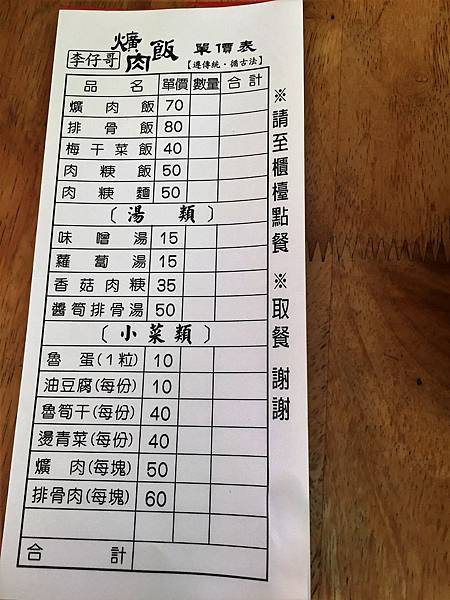 李仔哥 爌肉飯 單價表
【遵傳統・循古法】
品名 單價 數量 合計
爌肉飯 70
排骨飯 80
梅干菜飯 40
肉粳飯 50
肉粳麵 50
〔湯類〕
味噌湯 15
蘿蔔湯 15
香菇肉粳 35
醬筍排骨湯 50
〔小菜類〕
魯蛋(1粒) 10
油豆腐(每份) 10
魯筍干(每份) 40
燙青菜(每份) 40
爌肉(每塊) 50
排骨肉(每塊) 60
合計
※請至櫃檯點餐 ※取餐 謝謝